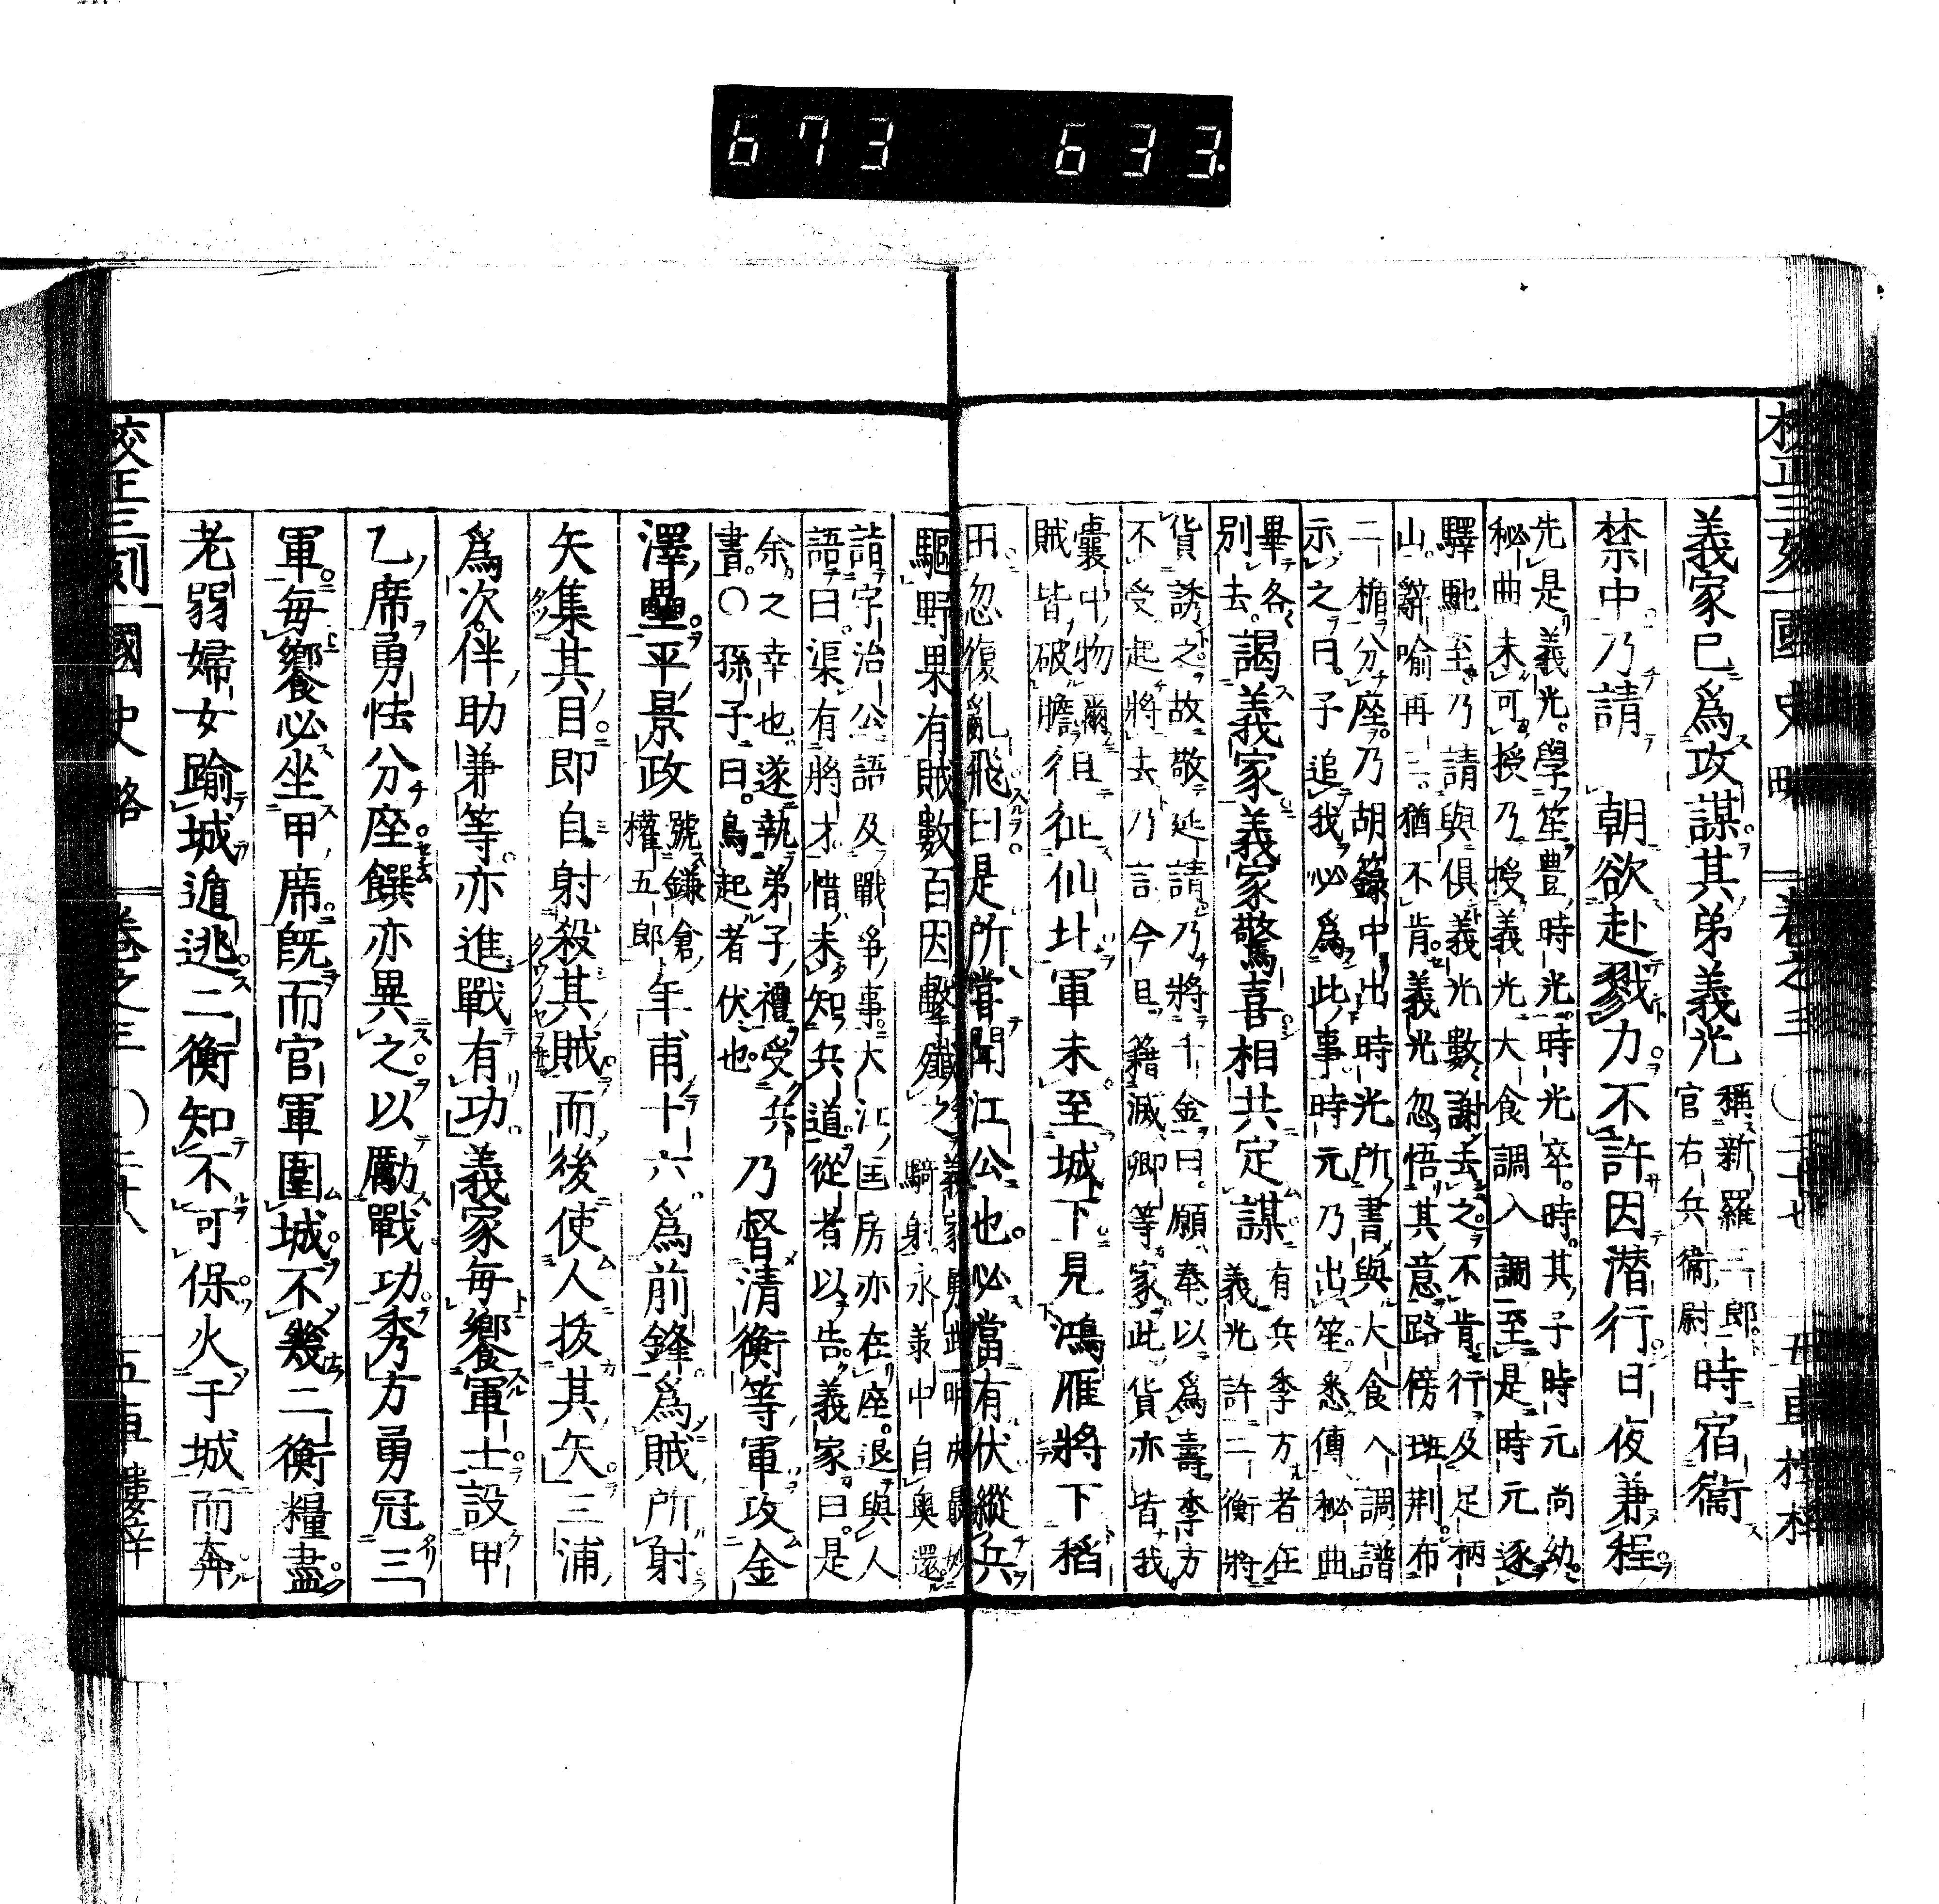 673 633.
義家已爲攻謀其弟義光
稱新羅二郎
官右兵衞尉
時宿衞
禁中乃請 朝欲赴戮力不許因潛行日夜兼程
先是義光學笙豊時光時光卒時其子時元尚幼
秘曲未可授乃授義光大食調入調至是時元逐
驛馳至乃請與俱義光數謝去之不肯行及足柄
山辭喻再三猶不肯義光忽悟其意路傍班荆布
二楯分座乃胡籙中出時光所書與大食入調譜
示之曰子追我必爲此事時元乃出笙悉傳秘曲
畢各
別去
謁義家義家驚喜相共定謀
有兵季方者任
義光許二衡將
貨誘之故敬延請乃將千金曰願奉以爲壽季方
不受起將去乃言今且籍滅卿等家此貨亦皆我
囊中物爾
賊皆破膽
且徇仙北軍未至城下見鴻雁將下稻
田忽復亂飛曰是所嘗聞江公也必當有伏縱兵
驅野果有賊數百因擊殲之
騎射永承中自奧還
詣宇治公語及戰爭事大江匡房亦在座退與人
語曰渠有將才惜未知兵道從者以告義家曰是
余之幸也遂執弟子禮受兵
書〇孫子曰鳥起者伏也
乃督清衡等軍攻金
澤壘平景政
號鎌倉
權五郎
年甫十六爲前鋒爲賊所射
矢集其目即自射殺其賊而後使人拔其矢三浦
爲次伴助兼等亦進戰有功義家每饗軍士設甲
乙席勇怯分座饌亦異之以勵戰功秀方勇冠三
軍每饗必坐甲席既而官軍圍城不幾二衡糧盡
老弱婦女踰城遁逃二衡知不可保火于城而奔
校正三刻國史略 卷之三